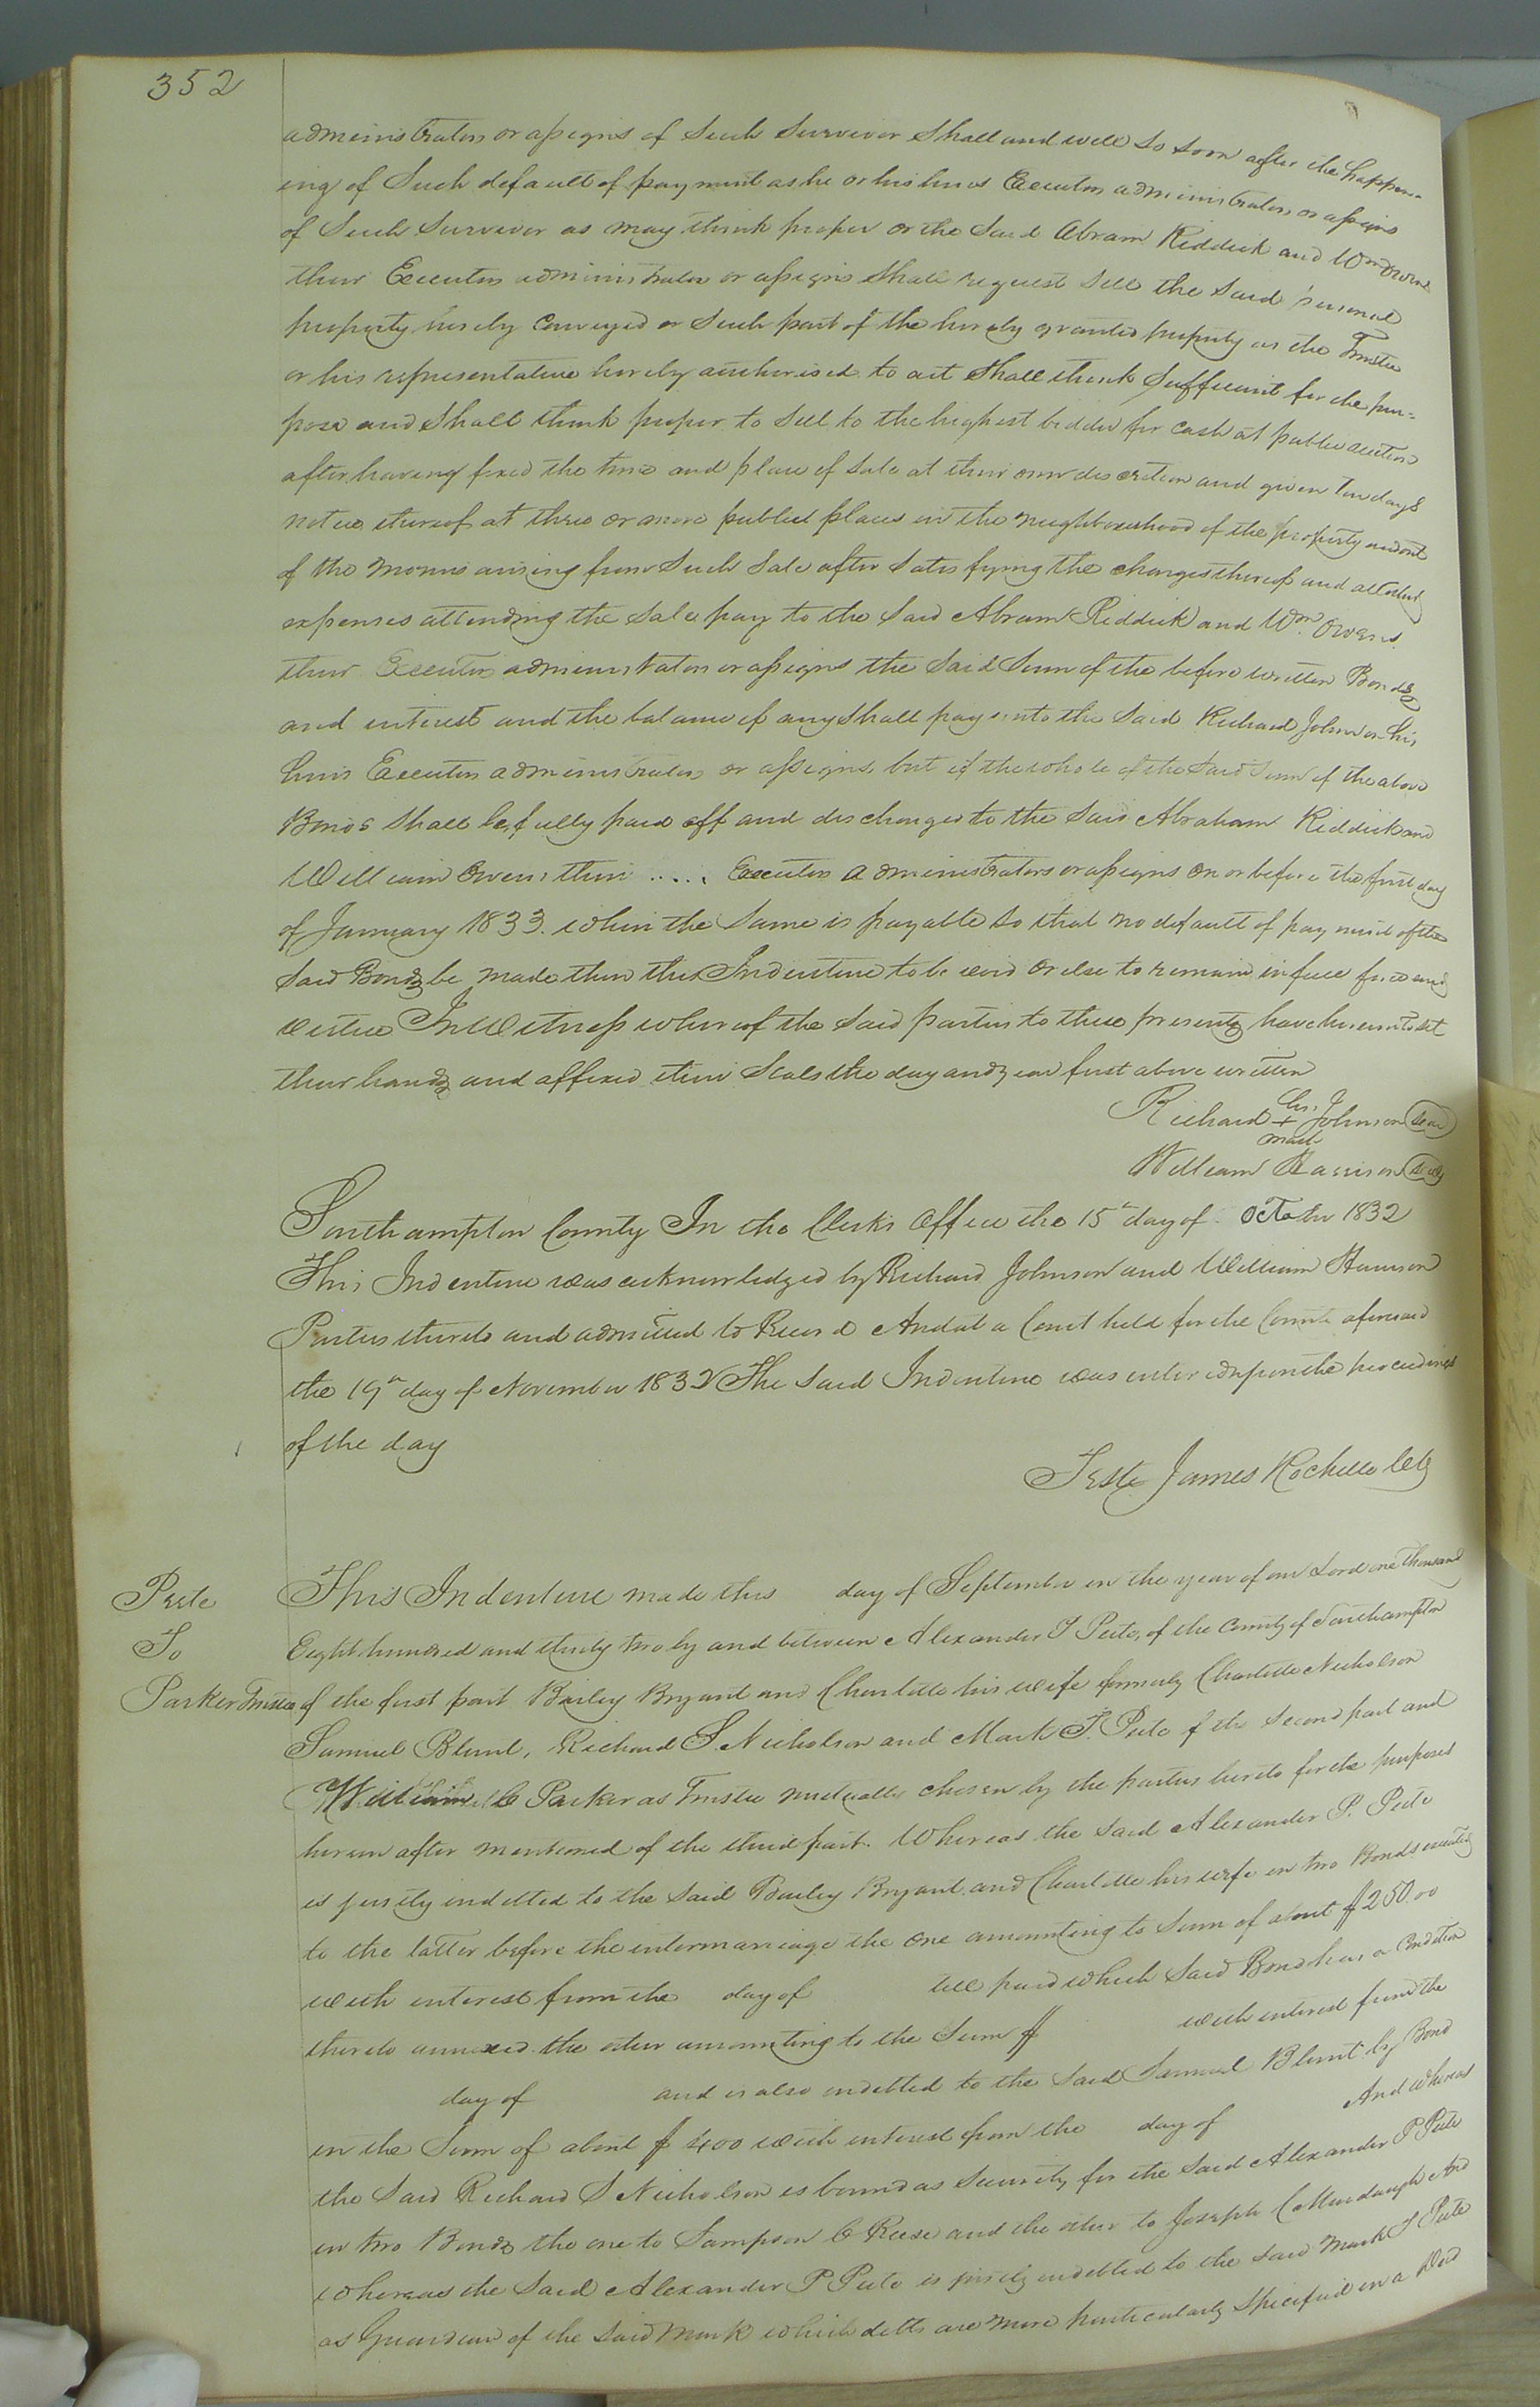 352
administrators or assigns of Such Survivor Shall and will So Soon after the happen-
ing of Such default of payment as he or his heirs Executors administrators or assigns
of Such Survivor as may think proper or the Said Abram Riddick and Wm Owens
their Executors administrators or assigns Shall request Sell the Said personal
property hereby Conveyed or Such part of the hereby granted property as the Trustee
or his representative hereby authorised to act Shall think Sufficient for the pur-
pose and Shall think proper to Sell to the highest bidder for Cash at public auction
after having fixed the time and place of Sale at their own discretion and given Ten days
notice thereof at three or more publick places in the neighbourhood of the property and out
of the monies arising from Such Sale after Satisfying the charges thereof and all other
expenses attending the Sale pay to the Said Abram Riddick and Wm. Owens
their Executors administrators or assigns the Said Sum of the before written Bonds
and interest and the balance if any Shall pay unto the Said Richard Johnson his
heirs Executors administrators or assigns, but if the whole of the Said Sum of the above
Bonds Shall be fully paid off and discharged to the Said Abraham Riddick and
William Owens their ..... Executors administrators or assigns on or before the first day
of January 1833. when the Same is payable So that no default of payment of the
Said Bonds be made then this Indenture to be void or else to remain in full force and
virtue In Witness whereof the Said parties to these presents have hereunto Set
their hands and affixed their Seals the day and year first above written
his
Richard + Johnson Seal
mark
William Harrison Seal
Southampton County In the Clerks Office the 15th day of October 1832
This Indenture was acknowledged by Richard Johnson and William Harrison
Parties thereto and admitted to Record And at a Court held for the County aforesaid
the 19th day of November 1832 The Said Indenture was entered upon the proceedings
of the day
Teste James Rochelle Clk
Peete
To
Parker Trustee
This Indenture made this day of September in the year of our Lord one thousand
Eight hundred and thirty two by and between Alexander P Peete, of the County of Southampton
of the first part Bailey Bryant and Charlotte his wife formerly Charlotte Nicholson
Samuel Blunt, Richard S. Nicholson and Mark T. Peete of the Second part and
William C Parker as Trustee mutually chosen by the parties hereto for the purposes
herein after mentioned of the third part. Whereas the Said Alexander P. Peete
is justly indebted to the Said Bailey Bryant and Charlotte his wife in two Bonds executed
to the latter before the intermarriage the one amounting to Sum of about $250.00
with interest from the day of till paid which Said Bond has a Condition
thereto annexed the other amounting to the Sum $ with interest from the
day of and is also indebted to the Said Samuel Blunt by Bond
in the Sum of about $ 400 with interest from the day of And whereas
the Said Richard S Nicholson is bound as Security for the Said Alexander P Peete
in two Bonds the one to Sampson C Reese and the other to Joseph C Murdaugh And
whereas the Said Alexander P Peete is justly indebted to the Said Mark T Peete
as Guardian of the Said Mark which debts are more particularly Specified in a Deed